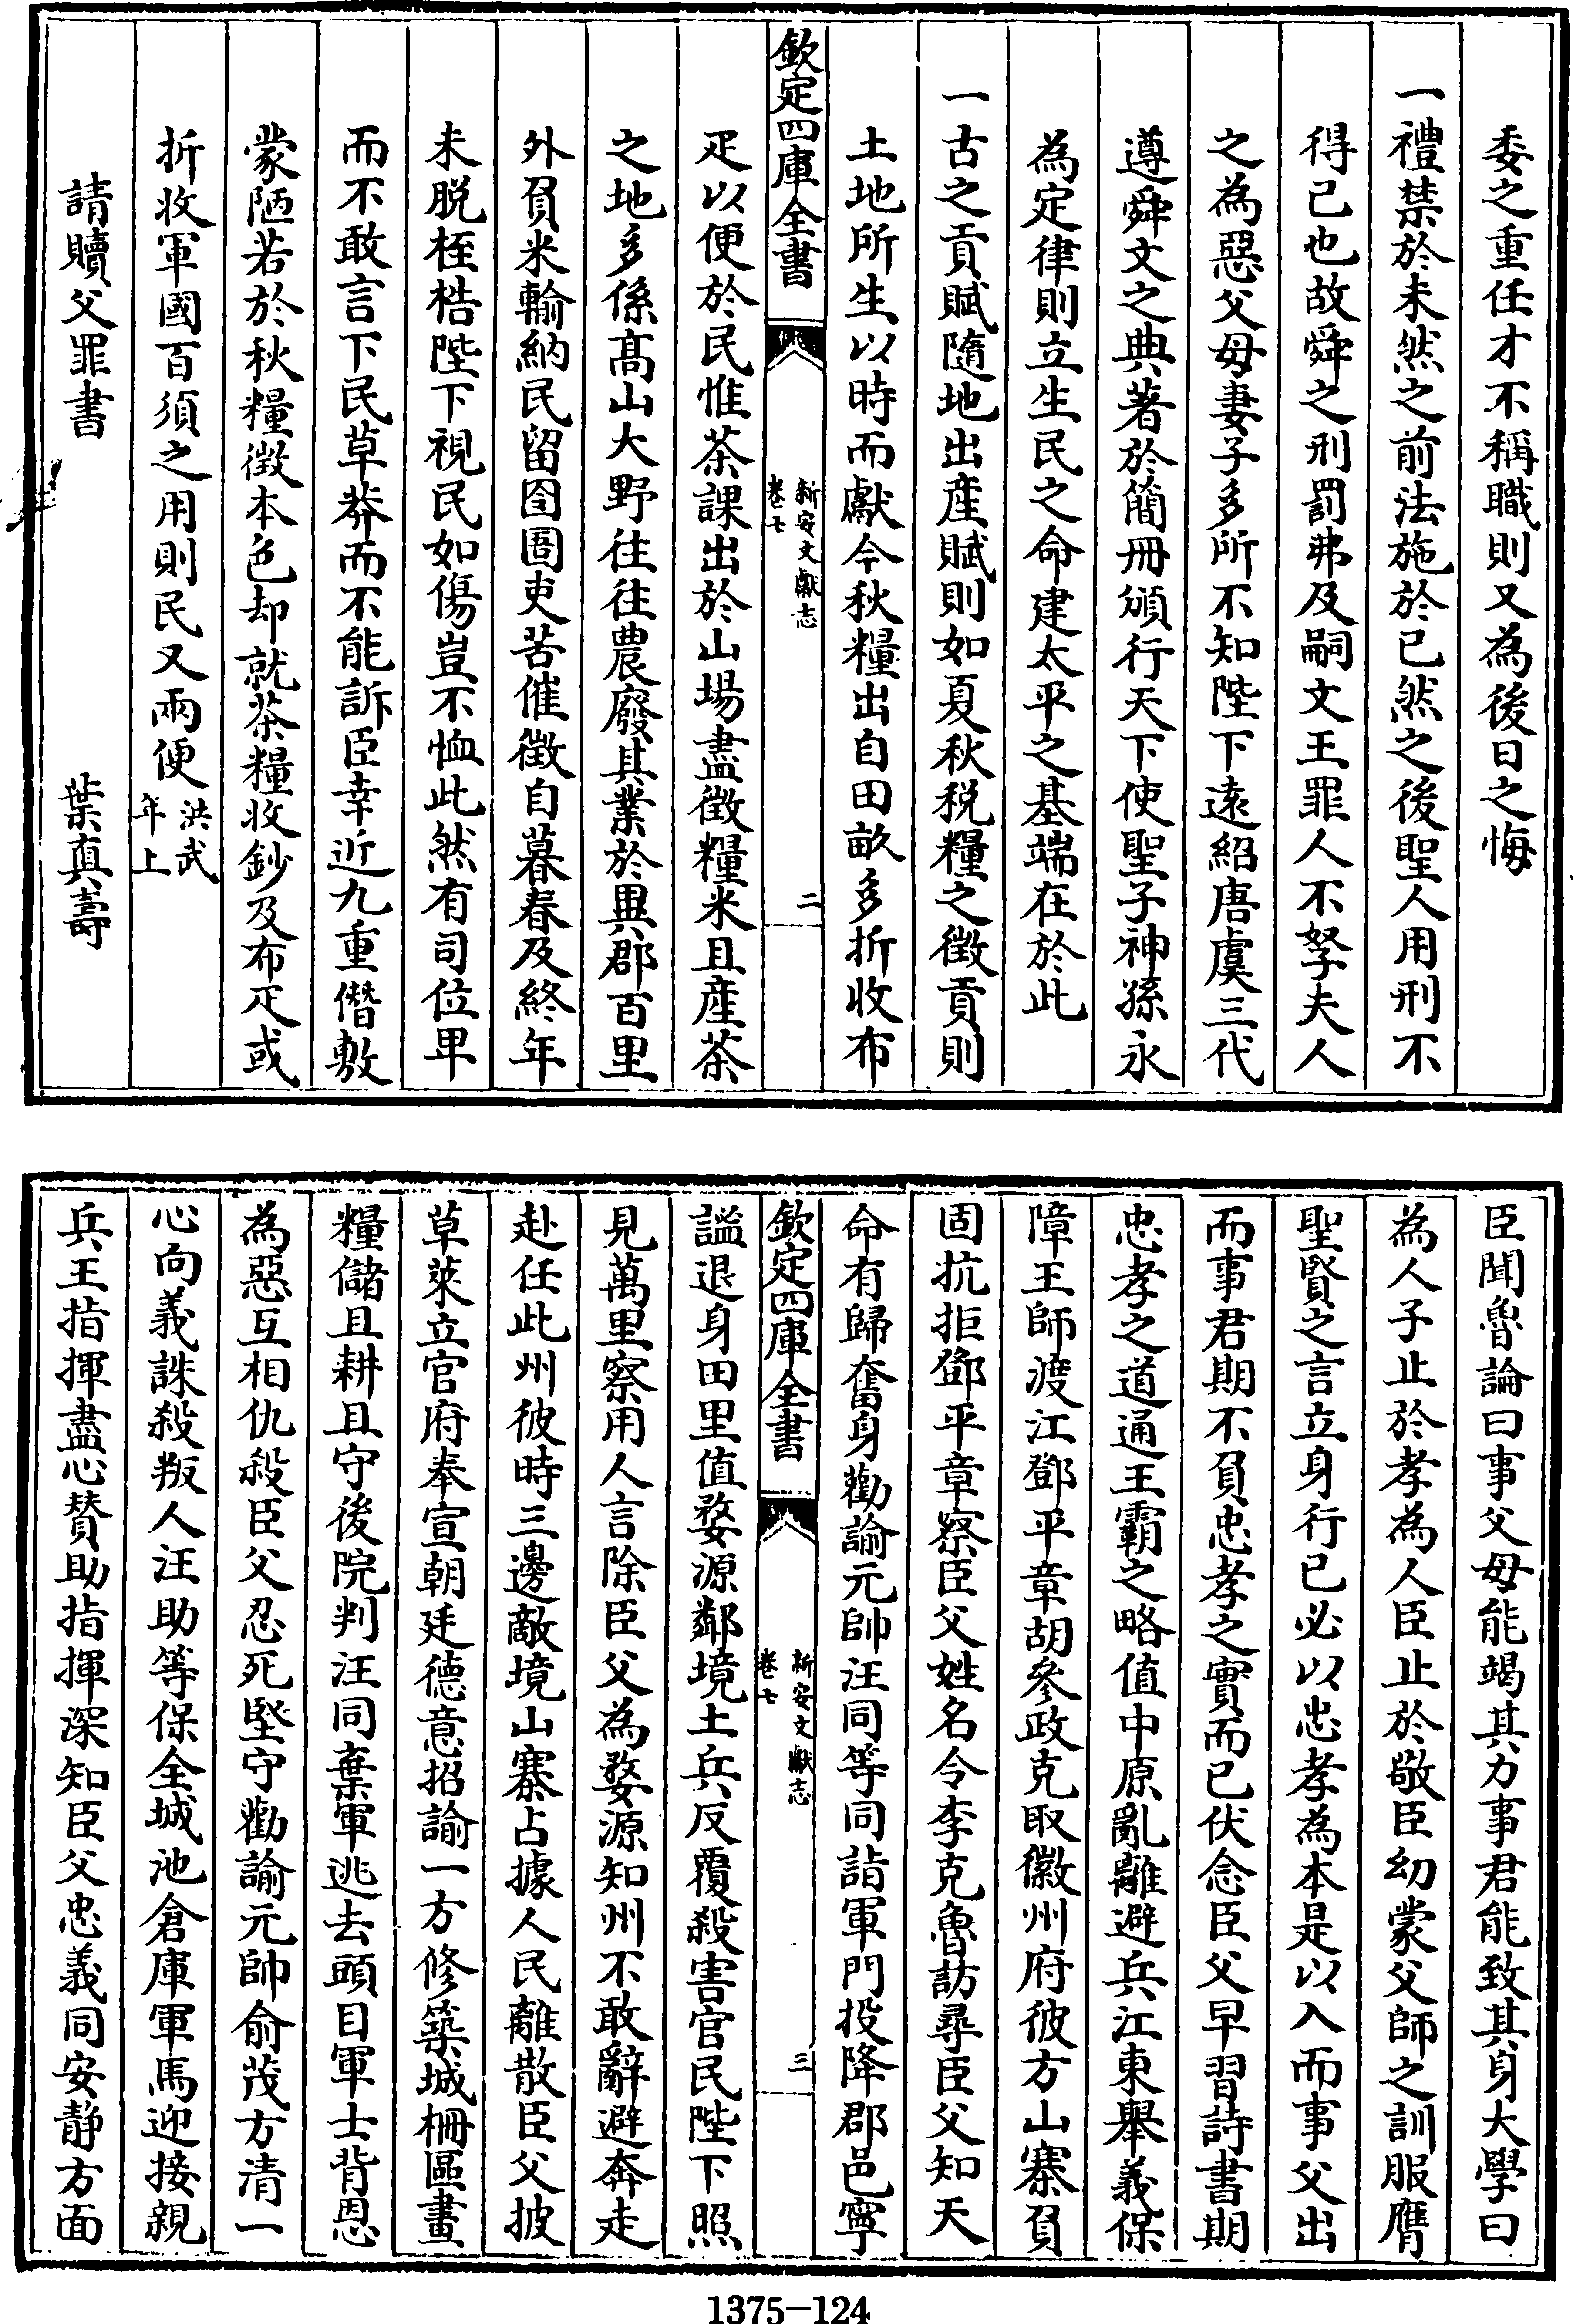 委之重任才不稱職則又為後日之悔
一禮禁於未然之前法施於已然之後聖人用刑不
得已也故舜之刑罰弗及嗣文王罪人不孥夫人
之為惡父母妻子多所不知陛下遠紹唐虞三代
遵舜文之典著於簡冊頒行天下使聖子神孫永
為定律則立生民之命建太平之基端在於此
一古之貢賦隨地出產賦則如夏秋稅糧之徵貢則
土地所生以時而獻今秋糧出自田畝多折收布
欽定四庫全書
新安文獻志
卷七
二
疋以便於民惟茶課出於山場盡徵糧米且產茶
之地多係髙山大野往往農廢其業於異郡百里
外負米輸納民留囹圄吏苦催徵自暮春及終年
未脫桎梏陛下視民如傷豈不恤此然有司位卑
而不敢言下民草莽而不能訴臣幸近九重僭敷
蒙陋若於秋糧徵本色却就茶糧收鈔及布疋或
折收軍國百須之用則民又兩便洪武
年上
請贖父罪書
葉真壽
臣聞魯論曰事父母能竭其力事君能致其身大學曰
為人子止於孝為人臣止於敬臣幼蒙父師之訓服膺
聖賢之言立身行已必以忠孝為本是以入而事父出
而事君期不負忠孝之實而已伏念臣父早習詩書期
忠孝之道通王霸之略值中原亂離避兵江東舉義保
障王師渡江鄧平章胡參政克取徽州府彼方山寨負
固抗拒鄧平章察臣父姓名令李克魯訪尋臣父知天
命有歸奮身勸諭元帥汪同等同詣軍門投降郡邑寧
欽定四庫全書
新安文獻志
卷七
三
謐退身田里值婺源鄰境土兵反覆殺害官民陛下照
見萬里察用人言除臣父為婺源知州不敢辭避奔走
赴任此州彼時三邊敵境山寨占據人民離散臣父披
草萊立官府奉宣朝廷德意招諭一方修築城柵區畫
糧儲且耕且守後院判汪同棄軍逃去頭目軍士背恩
為惡互相仇殺臣父忍死堅守勸諭元帥俞茂方清一
心向義誅殺叛人汪助等保全城池倉庫軍馬迎接親
兵王指揮盡心贊助指揮深知臣父忠義同安靜方面
1375—124